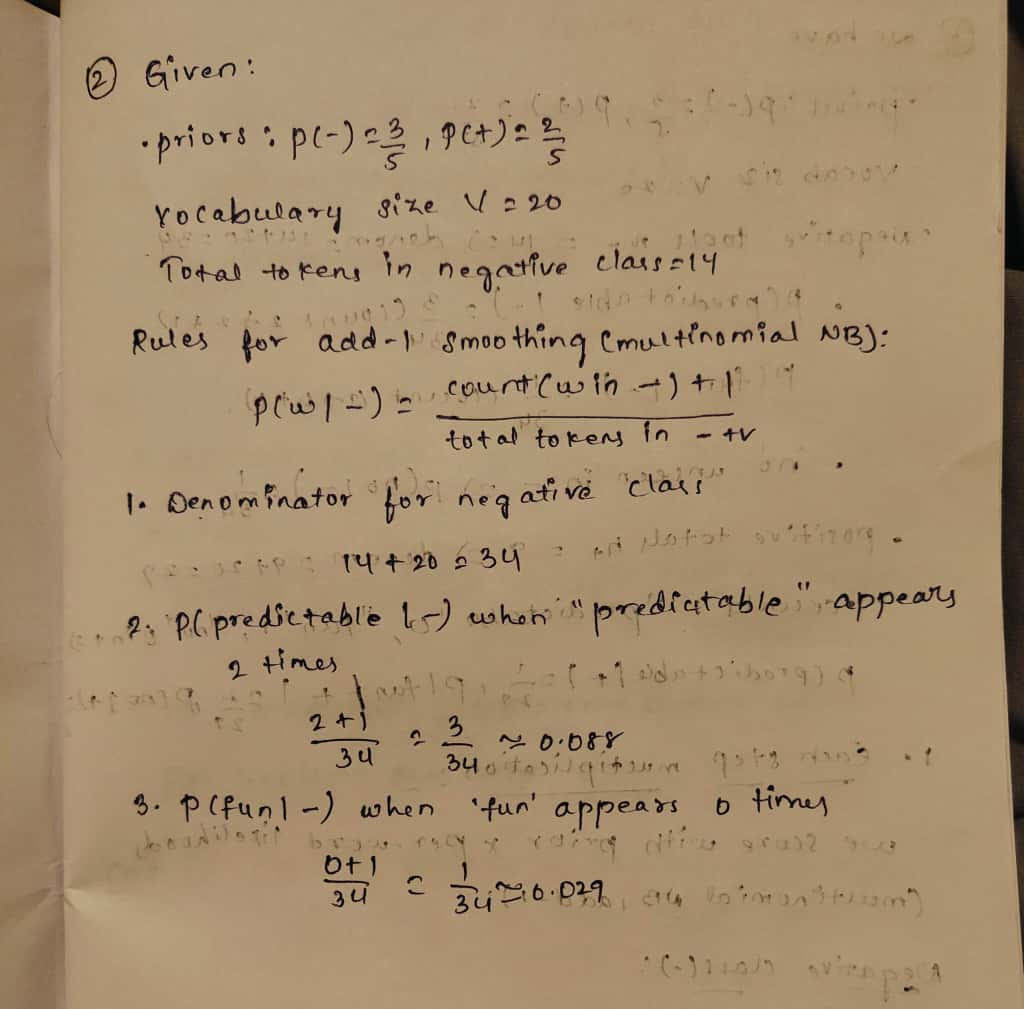 ② Given:
• priors : p(-) = 3/5 , p(+) = 2/5
vocabulary size V = 20
Total tokens in negative class = 14
Rules for add-1 smoothing (multinomial NB):
p(w|-) = count(w in -) + 1 / total tokens in - +v
1. Denominator for negative class
14 + 20 = 34
2. P(predictable |-) when "predictable" appears
2 times
2+1/34 = 3/34 ≈ 0.088
3. P(fun|-) when 'fun' appears 0 times
0+1/34 = 1/34 ≈ 0.029